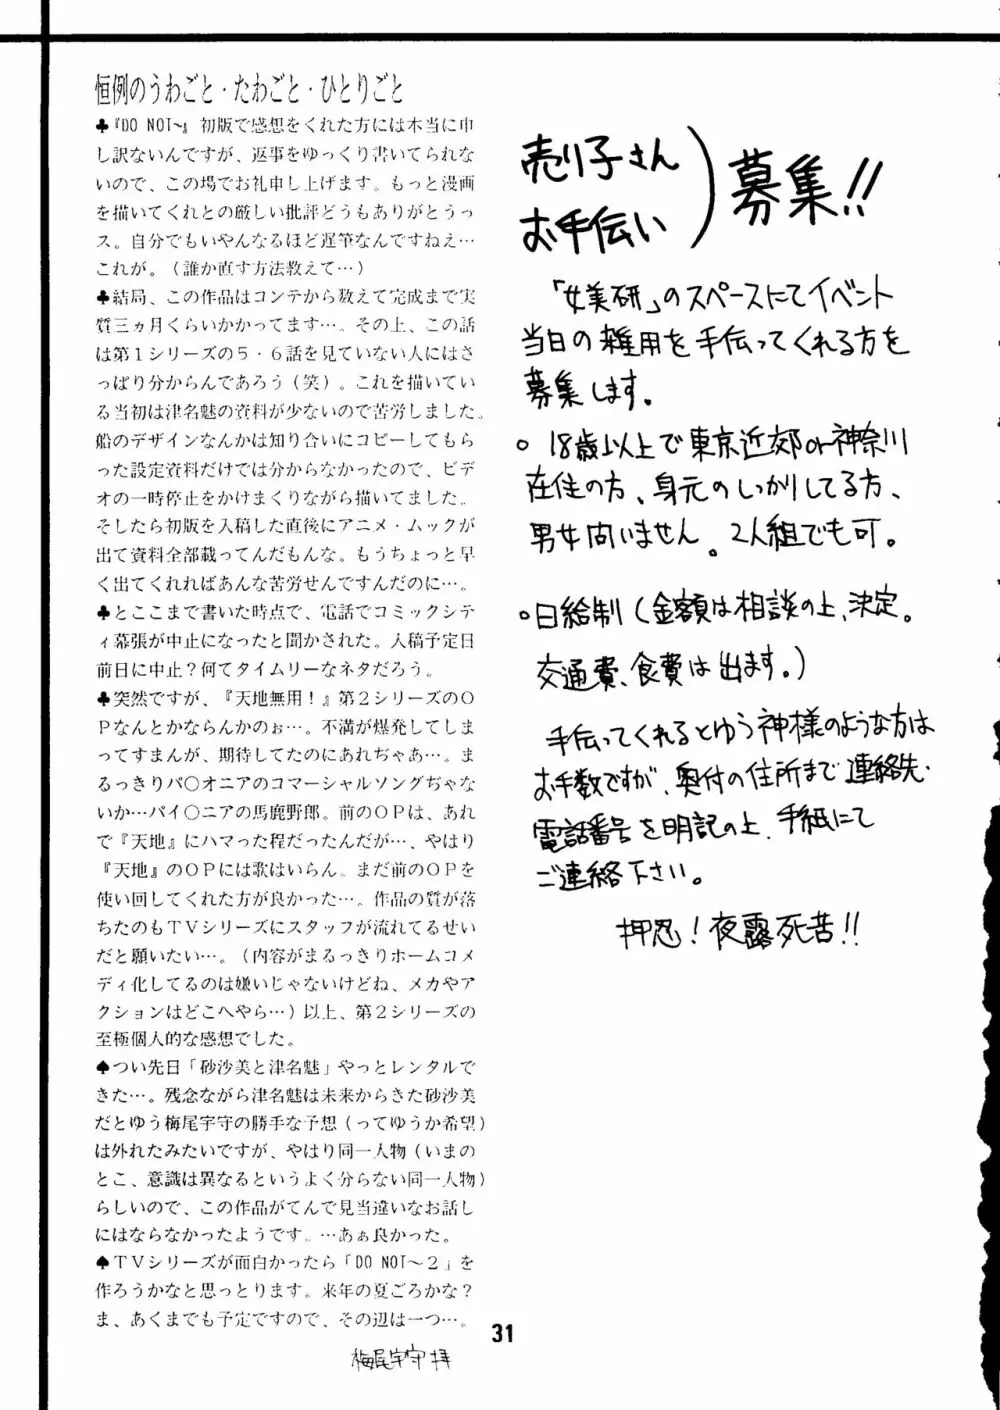 恒例のうわごと・たわごと・ひとりごと
♣『DO NOT～』初版で感想をくれた方には本当に申
し訳ないんですが、返事をゆっくり書いてられな
いので、この場でお礼申し上げます。もっと漫画
を描いてくれとの厳しい批評どうもありがとうっ
ス。自分でもいやんなるほど遅筆なんですねえ…
これが。（誰か直す方法教えて…）
♣結局、この作品はコンテから数えて完成まで実
質三ヵ月くらいかかってます…。その上、この話
は第１シリーズの５・６話を見ていない人にはさ
っぱり分からんであろう（笑）。これを描いてい
る当初は津名魅の資料が少ないので苦労しました。
船のデザインなんかは知り合いにコピーしてもら
った設定資料だけでは分からなかったので、ビデ
オの一時停止をかけまくりながら描いてました。
そしたら初版を入稿した直後にアニメ・ムックが
出て資料全部載ってんだもんな。もうちょっと早
く出てくれればあんな苦労せんですんだのに…。
♣とここまで書いた時点で、電話でコミックシテ
ィ幕張が中止になったと聞かされた。入稿予定日
前日に中止？何てタイムリーなネタだろう。
♣突然ですが、『天地無用！』第２シリーズのＯ
Ｐなんとかならんかのぉ…。不満が爆発してしま
ってすまんが、期待してたのにあれぢゃあ…。ま
るっきりパ〇オニアのコマーシャルソングぢゃな
いか…パイ〇ニアの馬鹿野郎。前のＯＰは、あれ
で『天地』にハマった程だったんだが…、やはり
『天地』のＯＰには歌はいらん。まだ前のＯＰを
使い回してくれた方が良かった…。作品の質が落
ちたのもＴＶシリーズにスタッフが流れてるせい
だと願いたい…。（内容がまるっきりホームコメ
ディ化してるのは嫌いじゃないけどね、メカやア
クションはどこへやら…）以上、第２シリーズの
至極個人的な感想でした。
♠つい先日「砂沙美と津名魅」やっとレンタルで
きた…。残念ながら津名魅は未来からきた砂沙美
だとゆう梅尾宇守の勝手な予想（ってゆうか希望）
は外れたみたいですが、やはり同一人物（いまの
とこ、意識は異なるというよく分らない同一人物）
らしいので、この作品がてんで見当違いなお話し
にはならなかったようです。…あぁ良かった。
♠ＴＶシリーズが面白かったら「DO NOT～２」を
作ろうかなと思っとります。来年の夏ごろかな？
ま、あくまでも予定ですので、その辺は一つ…。
梅尾宇守 拝
売り子さん
お手伝い）募集!!
「女美研」のスペースにてイベント
当日の雑用を手伝ってくれる方を
募集します。
○ 18歳以上で東京近郊or神奈川
在住の方、身元のしっかりしてる方、
男女問いません。2人組でも可。
○日給制（金額は相談の上、決定。
交通費、食費は出ます。）
手伝ってくれるとゆう神様のような方は
お手数ですが、奥付の住所まで連絡先・
電話番号を明記の上、手紙にて
ご連絡下さい。
押忍！夜露死苦!!
31